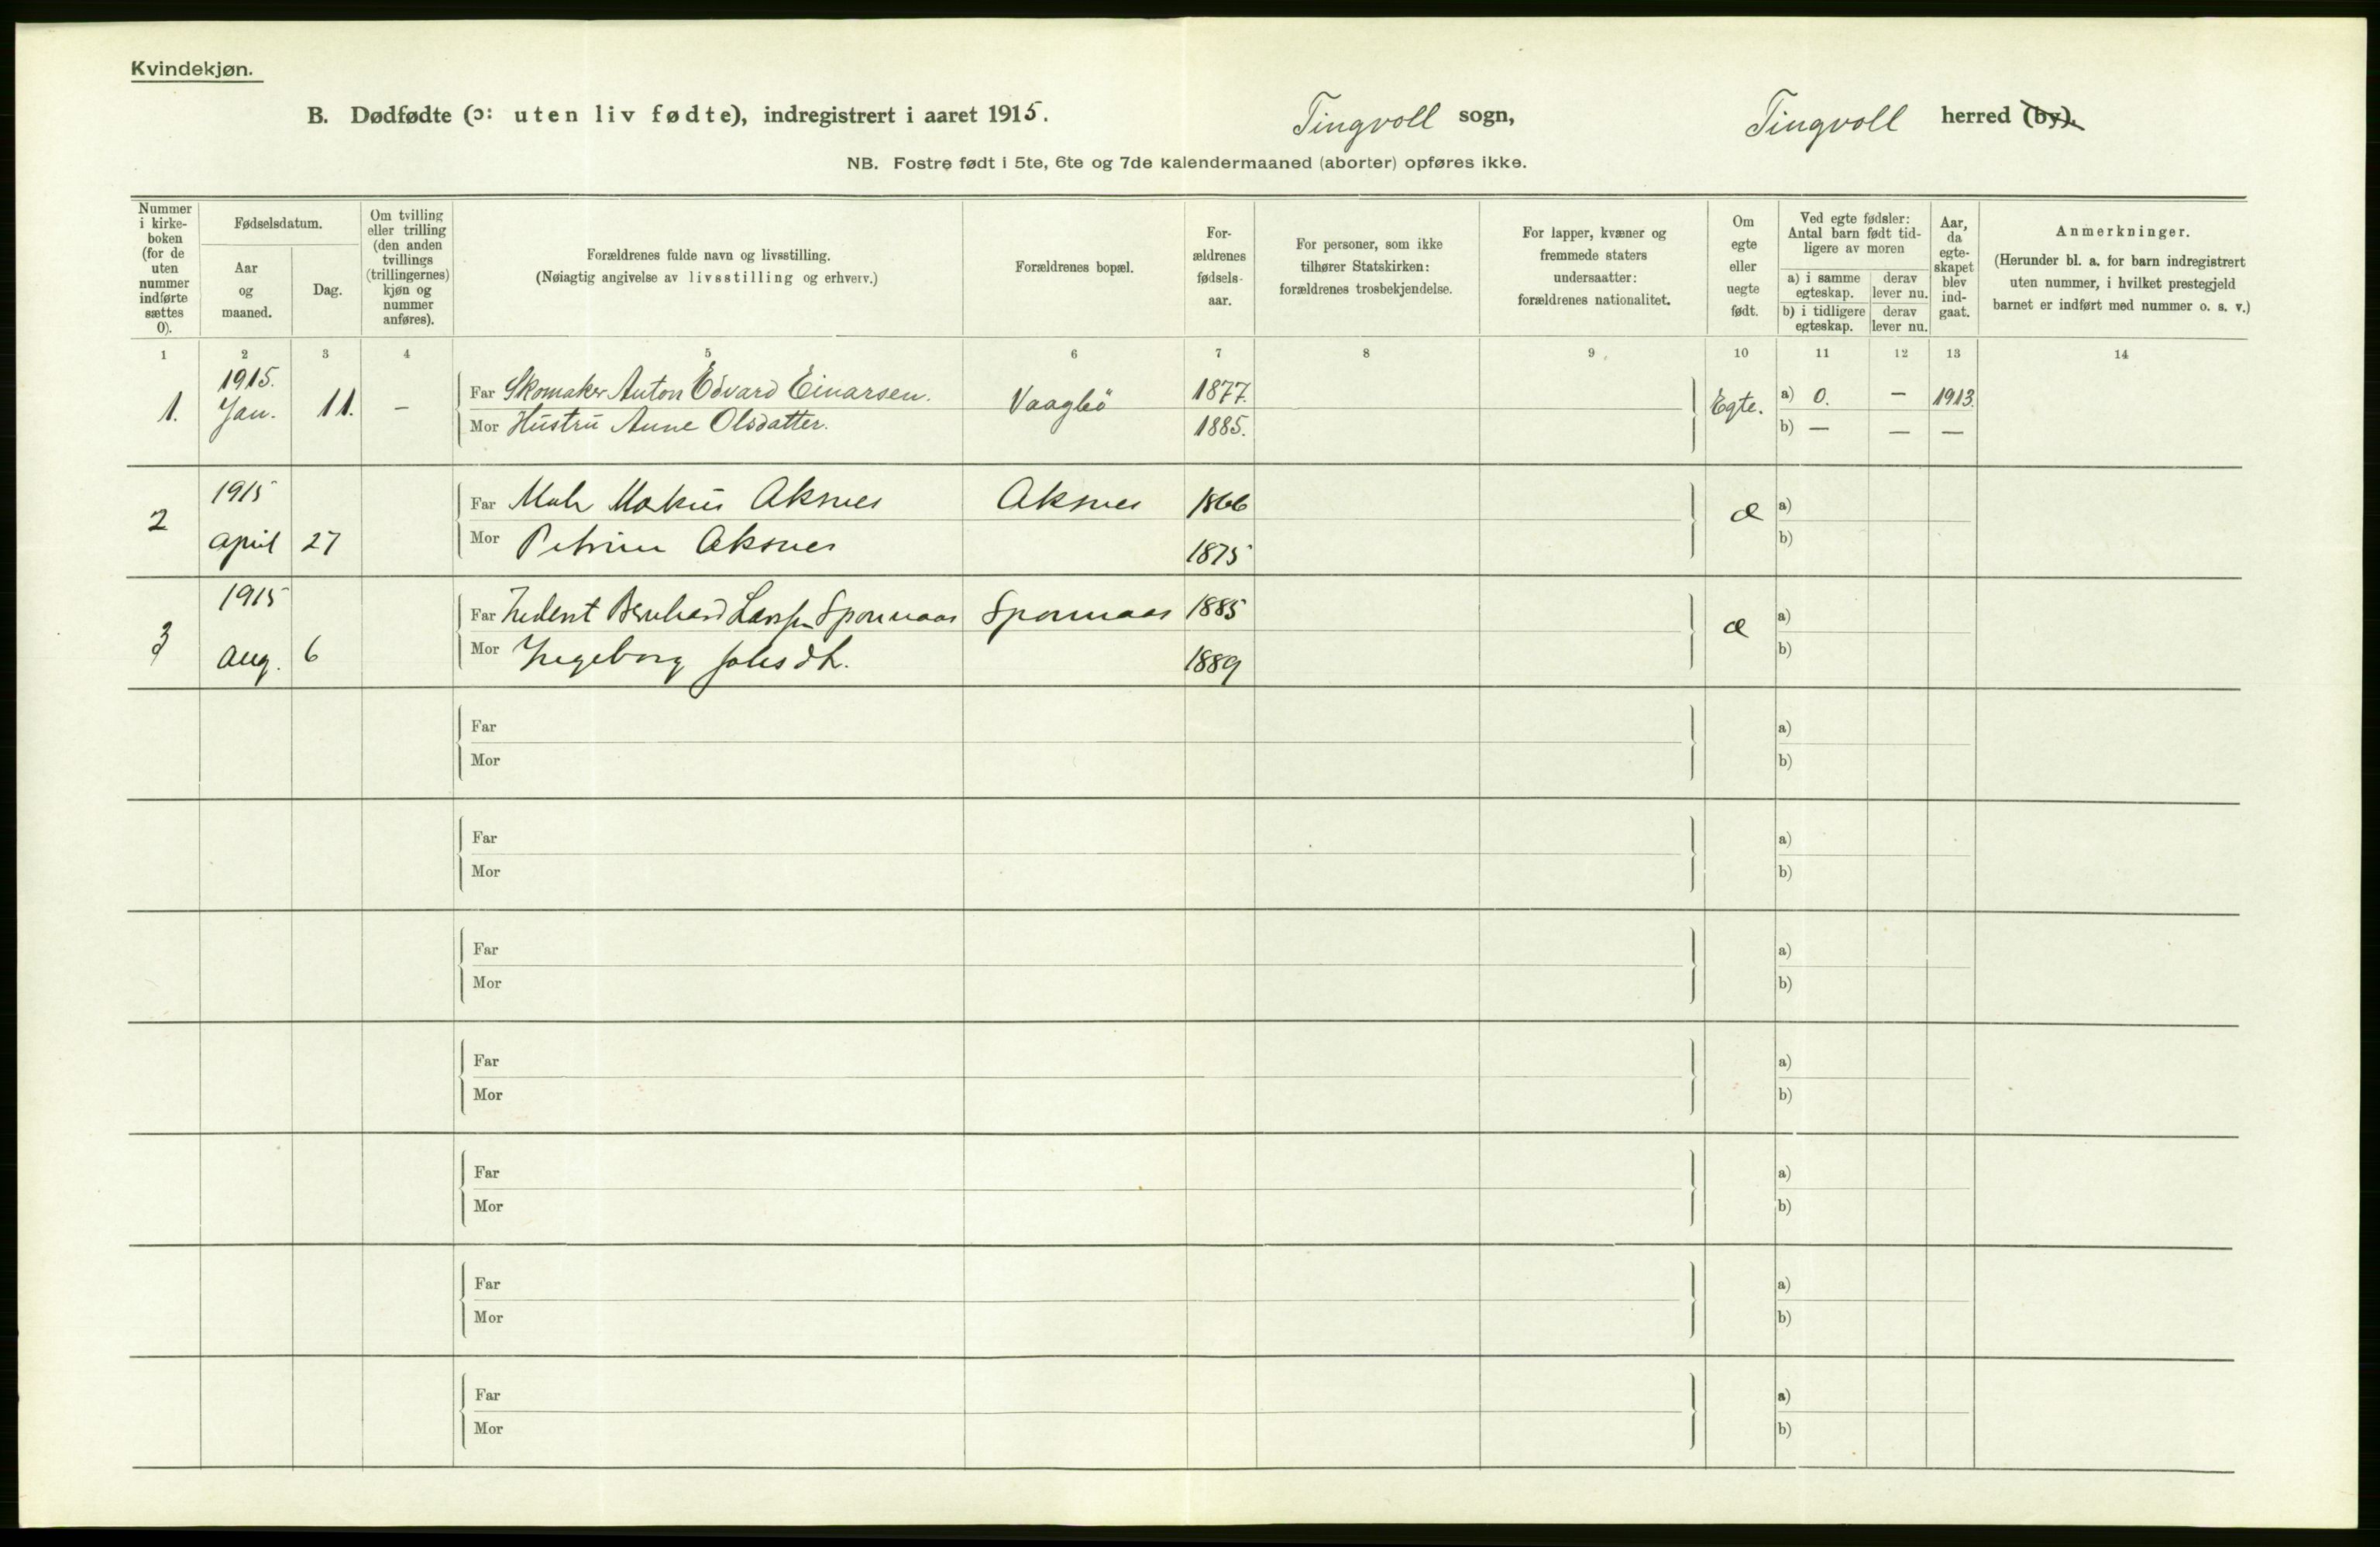 Kvindekjøn.
B. Dødfødte (ɔ: uten liv fødte), indregistrert i aaret 1915. Tingvoll sogn, Tingvoll herred (by).
NB. Fostre født i 5te, 6te og 7de kalendermaaned (aborter) opføres ikke.
Nummer i kirke-boken (for de uten nummer indførte sættes 0).
Fødselsdatum.
Aar og maaned.
Dag.
Om tvilling eller trilling (den anden tvillings (trillingernes) kjøn og nummer anføres).
Forældrenes fulde navn og livsstilling.
(Nøiagtig angivelse av livsstilling og erhverv.)
Forældrenes bopæl.
For-ældrenes fødsels-aar.
For personer, som ikke tilhører Statskirken: forældrenes trosbekjendelse.
For lapper, kvæner og fremmede staters undersaatter: forældrenes nationalitet.
Om egte eller uegte født.
Ved egte fødsler: Antal barn født tid-ligere av moren
a) i samme egteskap. derav lever nu.
b) i tidligere egteskap. derav lever nu.
Aar, da egte-skapet blev ind-gaat.
Anmerkninger.
(Herunder bl. a. for barn indregistrert uten nummer, i hvilket prestegjeld barnet er indført med nummer o. s. v.)
1 2 3 4 5 6 7 8 9 10 11 12 13 14
1. 1915. Jan. 11. –
Far Skomaker Anton Edvard Einarsen. Vaagbö 1877. Egte. a) 0. – 1913.
Mor Hustru Anne Olsdatter. 1885. b) – – –
2 1915 april 27
Far Markus Aksnes Aksnes 1866 æ a)
Mor Petrine Aksnes 1875 b)
3 1915 aug. 6
Far Bernhard Larssen 1885 æ a)
Mor Ingeborg 1889 b)
Far a)
Mor b)
Far a)
Mor b)
Far a)
Mor b)
Far a)
Mor b)
Far a)
Mor b)
Far a)
Mor b)
Far a)
Mor b)